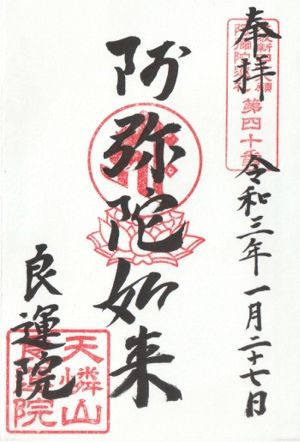 奉拝
第四十番
令和三年一月二十七日
阿弥陀如来
良運院
天嶙山
良運院